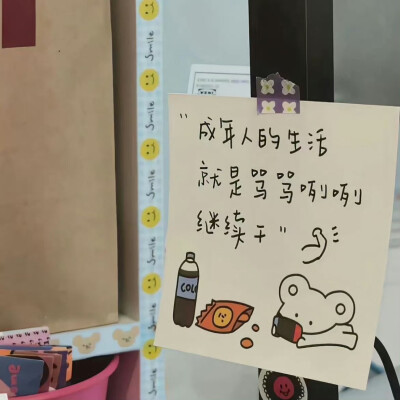 "成年人的生活
就是骂骂咧咧
继续干"
COLA
smile
smile
smile
smile
smile
smile